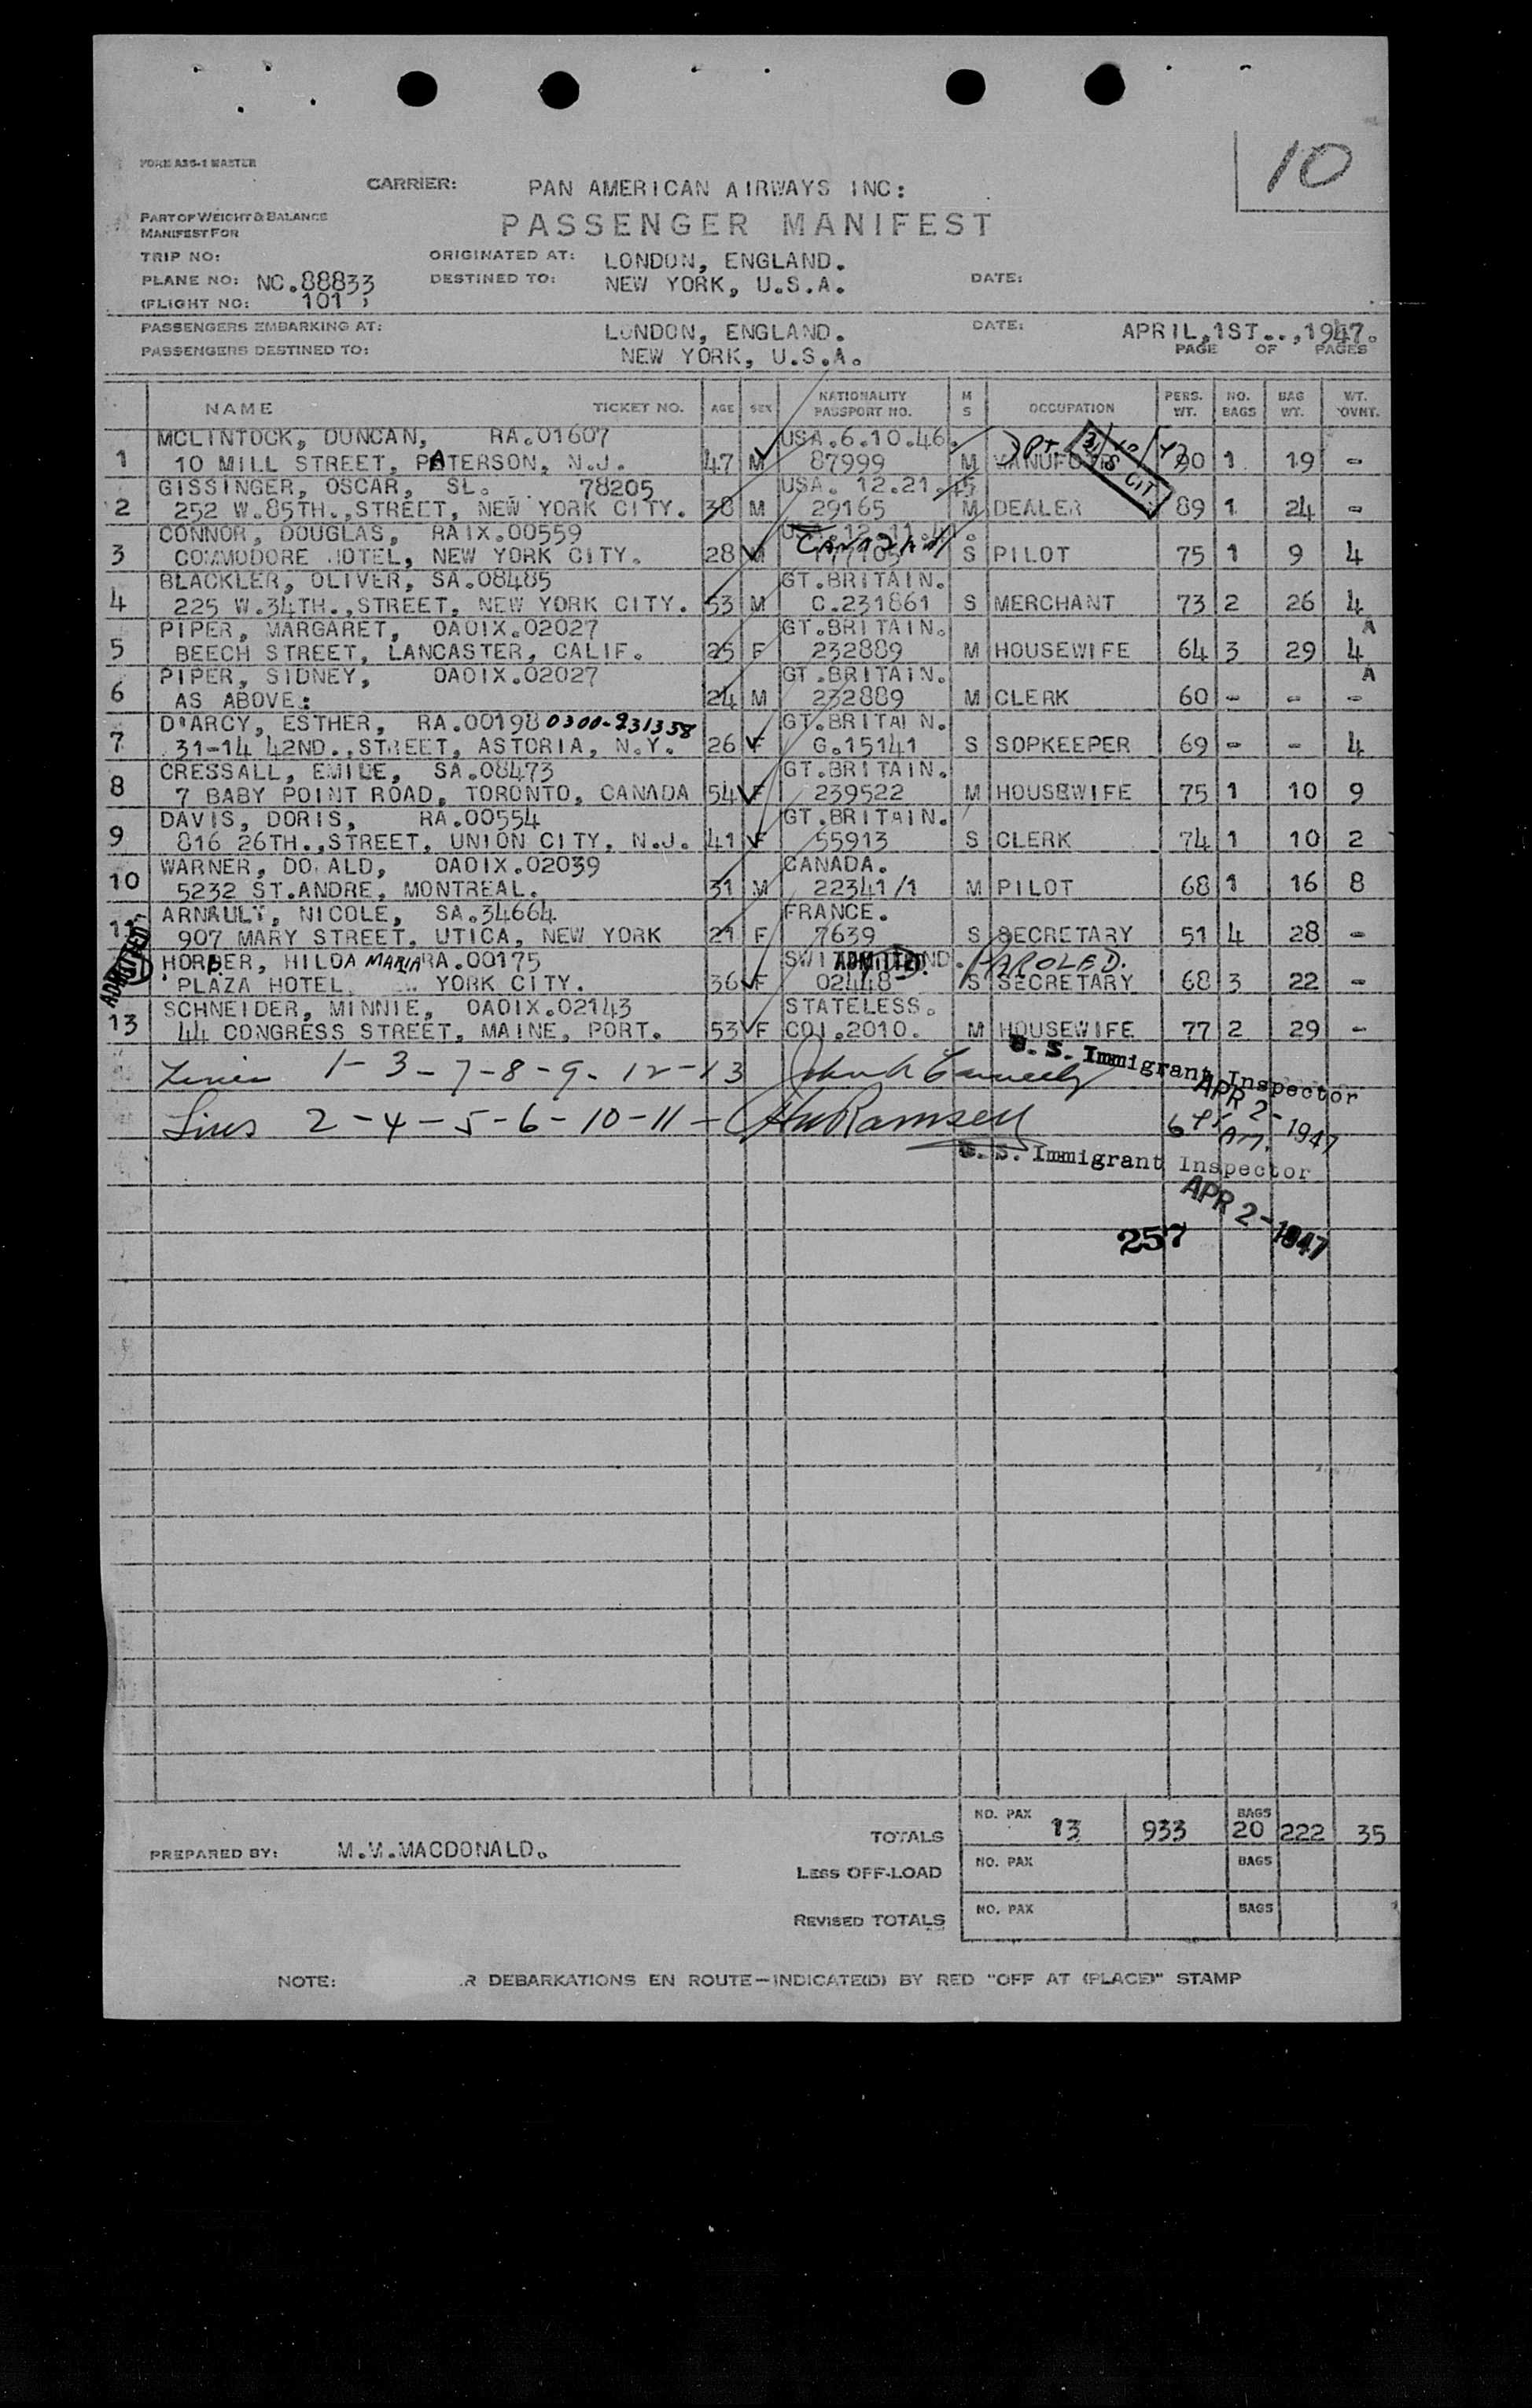 10
FORM A36-1 MASTER
CARRIER: PAN AMERICAN AIRWAYS INC:
PART OF WEIGHT & BALANCE
MANIFEST FOR
PASSENGER MANIFEST
TRIP NO: ORIGINATED AT: LONDON, ENGLAND.
PLANE NO: NC.88833 DESTINED TO: NEW YORK, U.S.A. DATE:
(FLIGHT NO: 101 ;
PASSENGERS EMBARKING AT: LONDON, ENGLAND. DATE: APRIL,1ST..,1947.
PASSENGERS DESTINED TO: NEW YORK, U.S.A. PAGE OF PAGES
NAME TICKET NO. AGE SEX NATIONALITY PASSPORT NO. M S OCCUPATION PERS. WT. NO. BAGS BAG WT. WT. OVHT.
MCLINTOCK, DUNCAN, RA.01607 USA.6.10.46.
1 10 MILL STREET, PATERSON, N.J. 47 M 87999 M 90 1 19 -
U S CIT
GISSINGER, OSCAR, SL. 78205 USA. 12.21.45
2 252 W.85TH.,STREET, NEW YORK CITY. 38 M 29165 M DEALER 89 1 24 -
CONNOR, DOUGLAS, RAIX.00559
3 COMMODORE HOTEL, NEW YORK CITY. 28 M CANADIAN S PILOT 75 1 9 4
BLACKLER, OLIVER, SA.08485 GT.BRITAIN.
4 225 W.34TH.,STREET, NEW YORK CITY. 53 M C.231861 S MERCHANT 73 2 26 4
PIPER, MARGARET, OAOIX.02027 GT.BRITAIN. A
5 BEECH STREET, LANCASTER, CALIF. 25 F 232889 M HOUSEWIFE 64 3 29 4
PIPER, SIDNEY, OAOIX.02027 GT.BRITAIN. A
6 AS ABOVE: 24 M 232889 M CLERK 60 - - -
D'ARCY, ESTHER, RA.00198 0300-231358 GT.BRITAI N.
7 31-14 42ND.,STREET, ASTORIA, N.Y. 26 F G.15141 S SOPKEEPER 69 - - 4
CRESSALL, EMILE, SA.08473 GT.BRITAIN.
8 7 BABY POINT ROAD, TORONTO, CANADA 54 F 239522 M HOUSEWIFE 75 1 10 9
DAVIS, DORIS, RA.00554 GT.BRITAIN.
9 816 26TH.,STREET, UNION CITY, N.J. 41 F 55913 S CLERK 74 1 10 2
WARNER, DO ALD, OAOIX.02039 CANADA.
10 5232 ST.ANDRE, MONTREAL. 31 M 22341/1 M PILOT 68 1 16 8
ARNAULT, NICOLE, SA.34664 FRANCE.
11 907 MARY STREET, UTICA, NEW YORK 21 F 7639 S SECRETARY 51 4 28 -
ADMITTED
HORBER, HILDA MARIA RA.00175 ADMITTED. PAROLED.
PLAZA HOTEL YORK CITY. 36 F 02448 S SECRETARY 68 3 22 -
SCHNEIDER, MINNIE, OAOIX.02143 STATELESS.
13 44 CONGRESS STREET, MAINE, PORT. 53 F COI.2010. M HOUSEWIFE 77 2 29 -
Lines 1-3-7-8-9-12-13
U. S. Immigrant Inspector
APR 2-1947
Lines 2-4-5-6-10-11- Ramsell
U. S. Immigrant Inspector
APR 2-1947
257
TOTALS NO. PAX 13 933 BAGS 20 222 35
PREPARED BY: M.M.MACDONALD.
LESS OFF-LOAD NO. PAX BAGS
REVISED TOTALS NO. PAX BAGS
NOTE: R DEBARKATIONS EN ROUTE—INDICATE(D) BY RED "OFF AT (PLACE)" STAMP